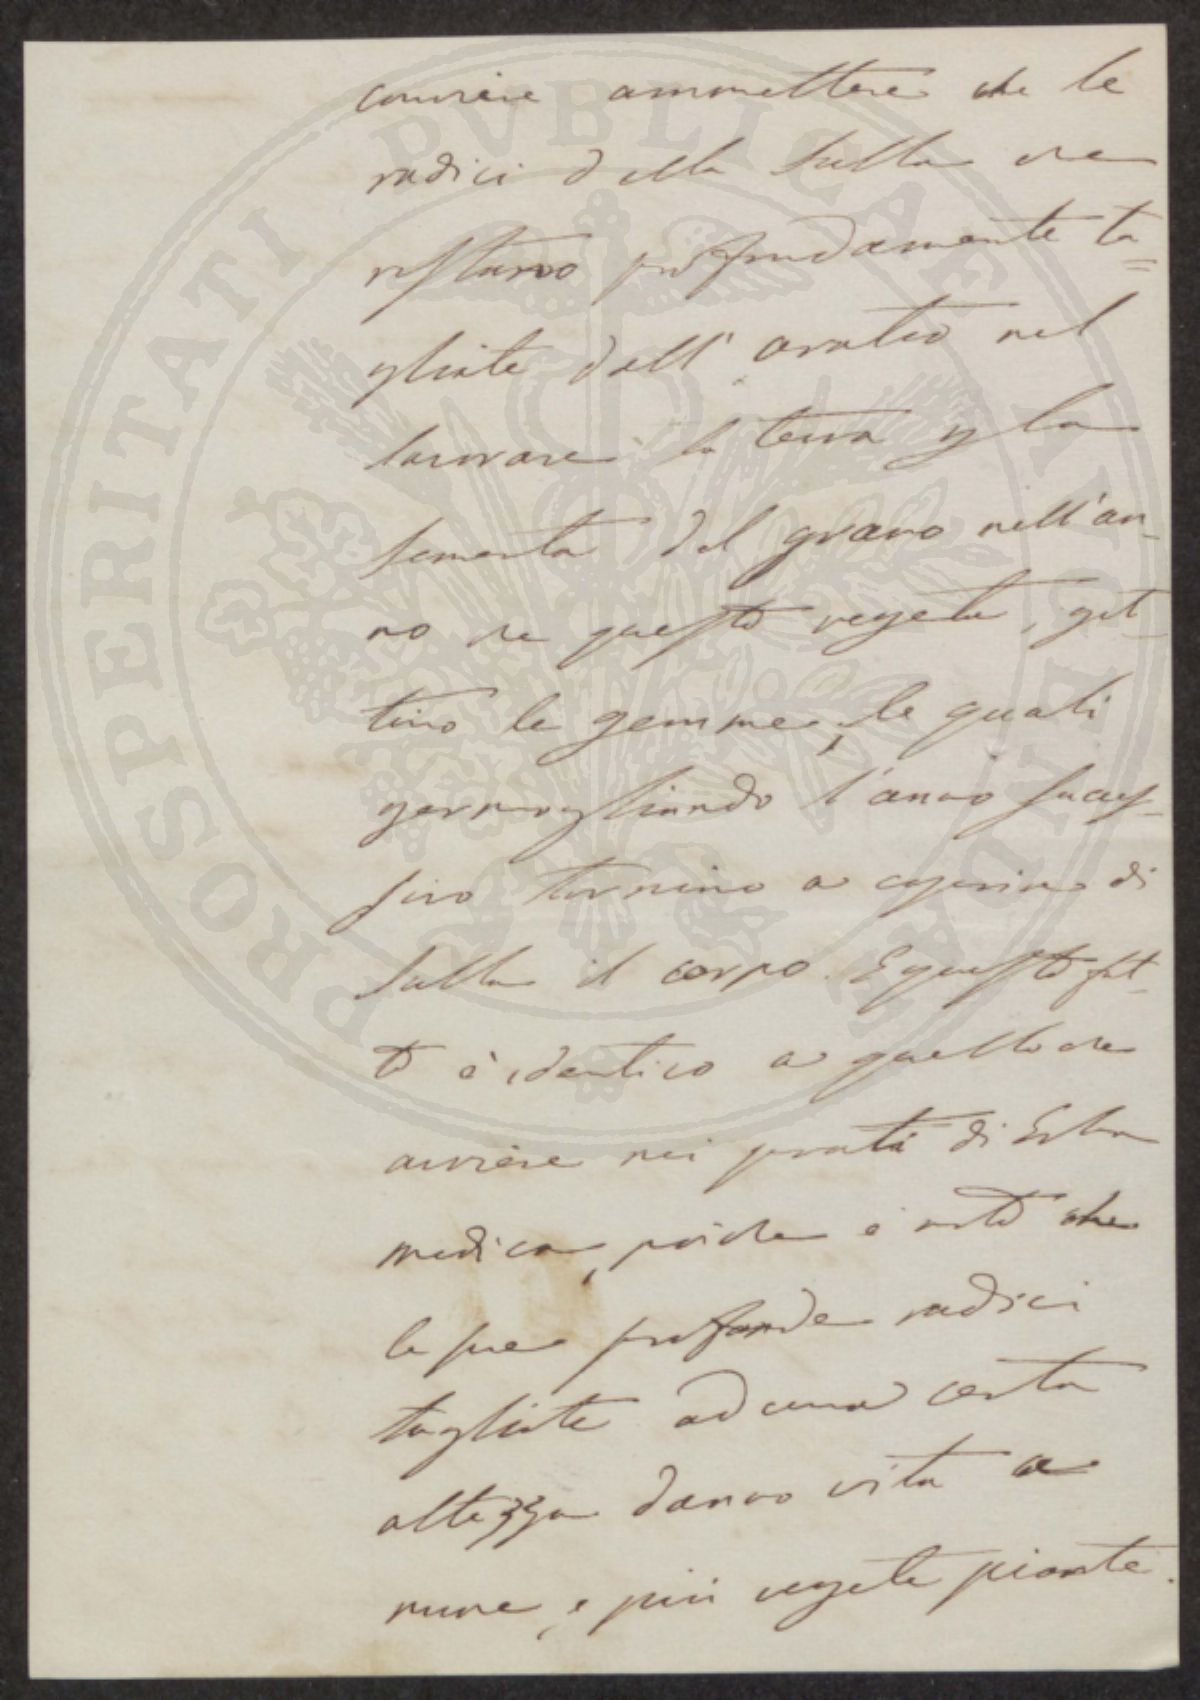 conviene ammettere che le
radici della Sulla che
restano profondamente ta=
gliate dall'aratro nel
lavorare la terra p la
sementa del grano nell'an-
no che questo vegeta, get-
tino le gemme, le quali
germogliando l'anno succes-
sivo tornino a coprire di
Sulla il corpo. E questo fat-
to è identico a quello che
avviene nei prati di Erba
medica, poiche è noto che
le sue profonde radici
tagliate ad una certa
altezza danno vita a
nuove, e più vegete piante.
PROSPERITATI PVBLICAE AVGENDAE